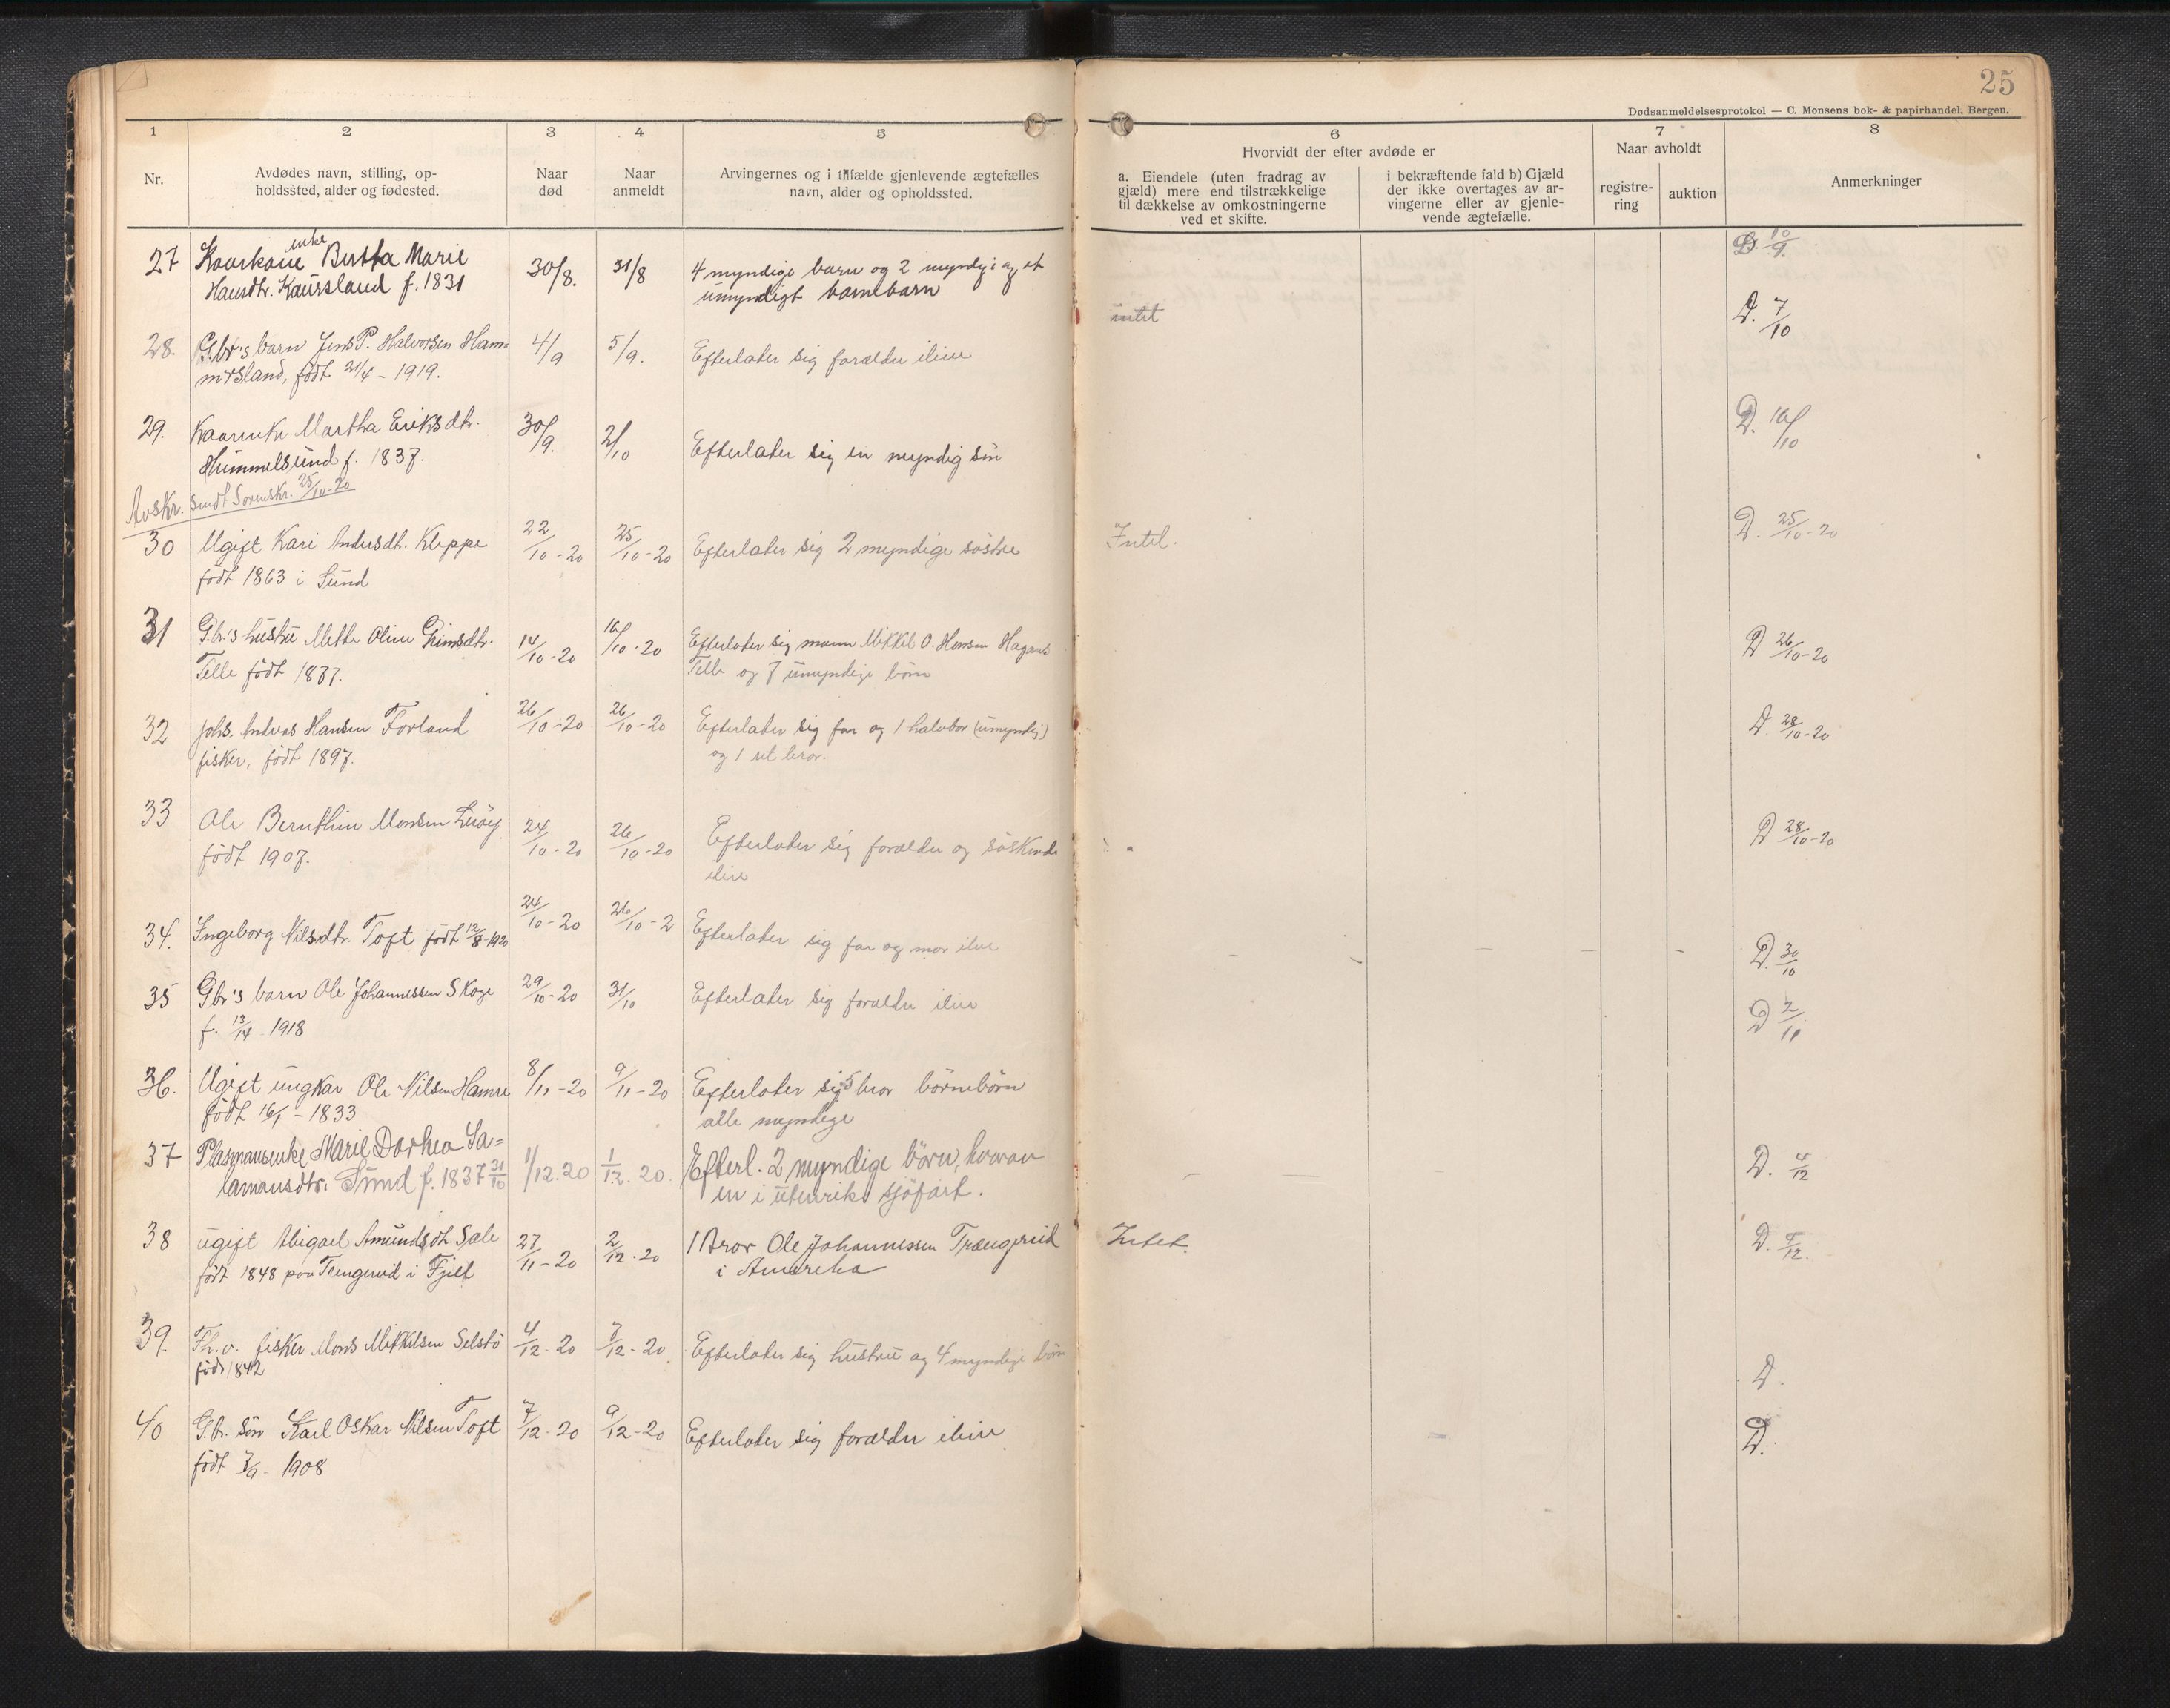 25
Dødsanmeldelsesprotokol — C. Monsens bok- & papirhandel, Bergen.
1 2 3 4 5 6 7 8
Nr.
Avdødes navn, stilling, op-
holdssted, alder og fødested.
Naar
død
Naar
anmeldt
Arvingernes og i tilfælde gjenlevende ægtefælles
navn, alder og opholdssted.
Hvorvidt der efter avdøde er
a. Eiendele (uten fradrag av
gjæld) mere end tilstrækkelige
til dækkelse av omkostningerne
ved et skifte.
i bekræftende fald b) Gjæld
der ikke overtages av ar-
vingerne eller av gjenle-
vende ægtefælle.
Naar avholdt
registre-
ring
auktion
Anmerkninger
enke
27 Kaarkone Berta Marie 30/8. 31/8 4 myndige barn og 2 myndige og et D 10/9.
Hansdtr. Kaursland f. 1831 umyndigt barnebarn
intet D. 7/10
28. Gbr's barn Jens P. Halvorsen Ham 4/9 5/9. Efterlater sig forældre ilive
mersland, födt 21/4 - 1919.
29. Kaarenke Martha Eriksdtr. 30/9. 2/10 Efterlater sig en myndig sön D. 16/10
Hummelsund f. 1837.
Avskr. sendt Sorenskr. 25/10-20
30 Ugift Kari Andersdt. Kleppe 22/10-20 25/10-20 Efterlater sig 2 myndige söstre Intet. D. 25/10-20
födt 1863 i Sund
31 G.br's hustru Mette Oline Grimsdtr. 14/10-20 16/10-20 Efterlater sig mann Mikkel O. Hansen D 26/10-20
Telle födt 1877. Telle og 7 umyndige börn
32 Johs. Andreas Hansen Forland 26/10-20 26/10-20 Efterlater sig far og 1 halvbror (umyndig) D. 28/10-20
fisker, födt 1897. og 1 bror.
33 Ole Bernthin Monsen 24/10-20 26/10-20 Efterlater sig forældre og söskende D 28/10-20
födt 1907. ilive
34. Ingeborg Nilsdtr. Toft födt 12/8-1920 24/10-20 26/10-2 Efterlater sig far og mor ilive D. 30/10
35 Gbr's barn Ole Johannessen Skoge 29/10-20 31/10 Efterlater sig forældre ilive D 2/11
f. 13/14 - 1918
36. Ugift ungkar Ole Nilsen Hamre 8/11-20 9/11-20 Efterlater sig 5 bror börnebörn
födt 16/1 - 1833 alle myndige
37 Plasmansenke Marie Dorhea Sa= 1/12.20 1/12.20. Efterl. 2 myndige börn, hvorav D. 4/12
lamansdtr. Sund f. 1837 31/10 en i utenriks sjöfart.
38 ugift Abigael Amundsdt. Sæle 27/11-20 2/12.20 1 Bror Ole Johannessen Trængereid Intet. D. 4/12.
födt 1848 paa Trengereid i Fjeld i Amerika
39. Fh.v. fisker Mons Mikkelsen Selstö 4/12-20 7/12-20 Efterlater sig hustru og 4 myndige börn D.
födt 1842
40 G.br. sön Karl Oskar Nilsen Toft 7/12-20 9/12-20 Efterlater sig forældre ilive D.
födt 1908